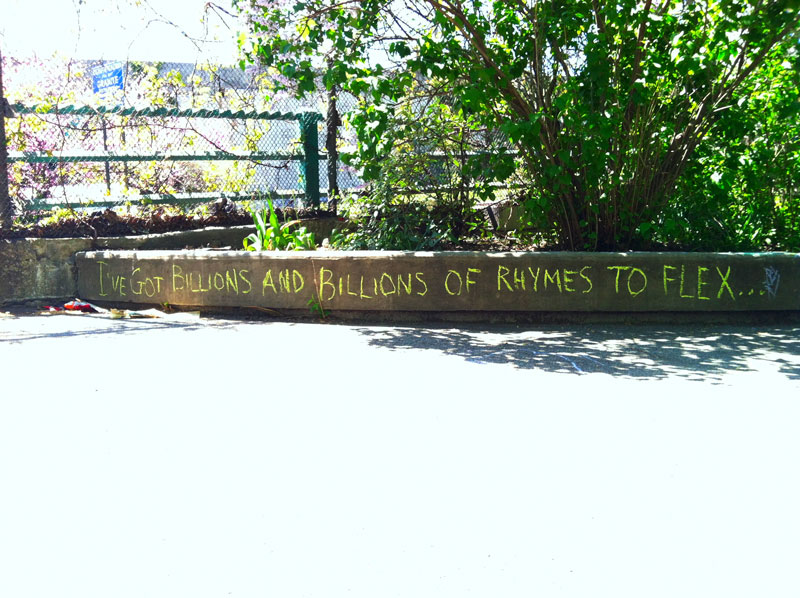 I'VE GOT BILLIONS AND BILLIONS OF RHYMES TO FLEX...